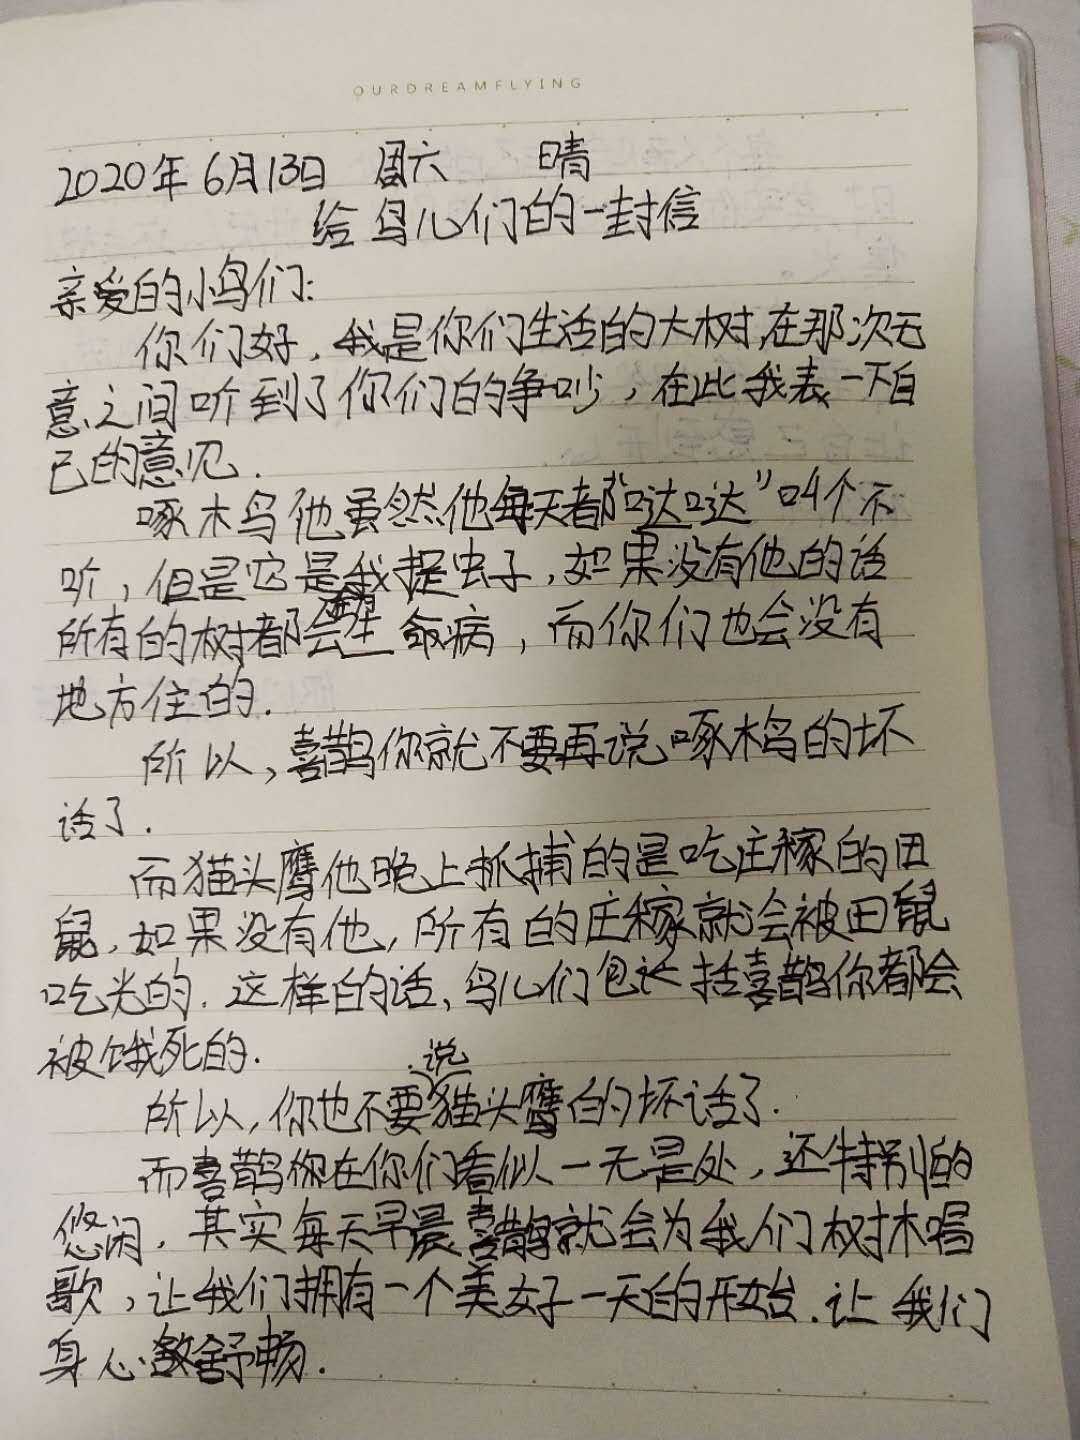 OURDREAMFLYING
2020年6月13日 周六 晴
给鸟儿们的一封信
亲爱的小鸟们:
你们好,我是你们生活的大树,在那次无
意之间听到了你们的争吵,在此我表一下自
己的意见.
啄木鸟他虽然他每天都“哒哒”叫个不
听,但是它是我捉虫子,如果没有他的话
所有的树都会 病,而你们也会没有
地方住的.
所以,喜鹊你就不要再说啄木鸟的坏
话了.
而猫头鹰他晚上抓捕的是吃庄稼的田
鼠,如果没有他,所有的庄稼就会被田鼠
吃光的.这样的话,鸟儿们包括喜鹊你都会
被饿死的.
所以,你也不要说猫头鹰的坏话了.
而喜鹊你在你们看似一无是处,还特别的
悠闲,其实每天早晨喜鹊就会为我们树木唱
歌,让我们拥有一个美好一天的开始.让我们
身心舒畅.